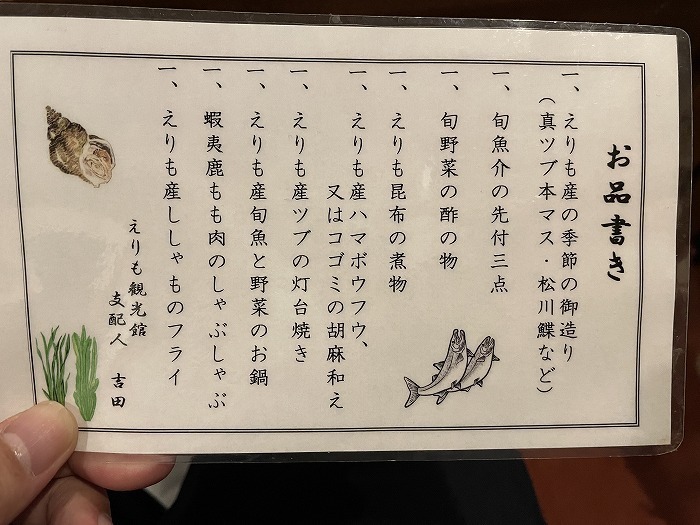 お品書き
一、えりも産の季節の御造り
（真ツブ本マス・松川鰈など）
一、旬魚介の先付三点
一、旬野菜の酢の物
一、えりも昆布の煮物
一、えりも産ハマボウフウ、
又はコゴミの胡麻和え
一、えりも産ツブの灯台焼き
一、えりも産旬魚と野菜のお鍋
一、蝦夷鹿もも肉のしゃぶしゃぶ
一、えりも産ししゃものフライ
えりも観光館
支配人 吉田